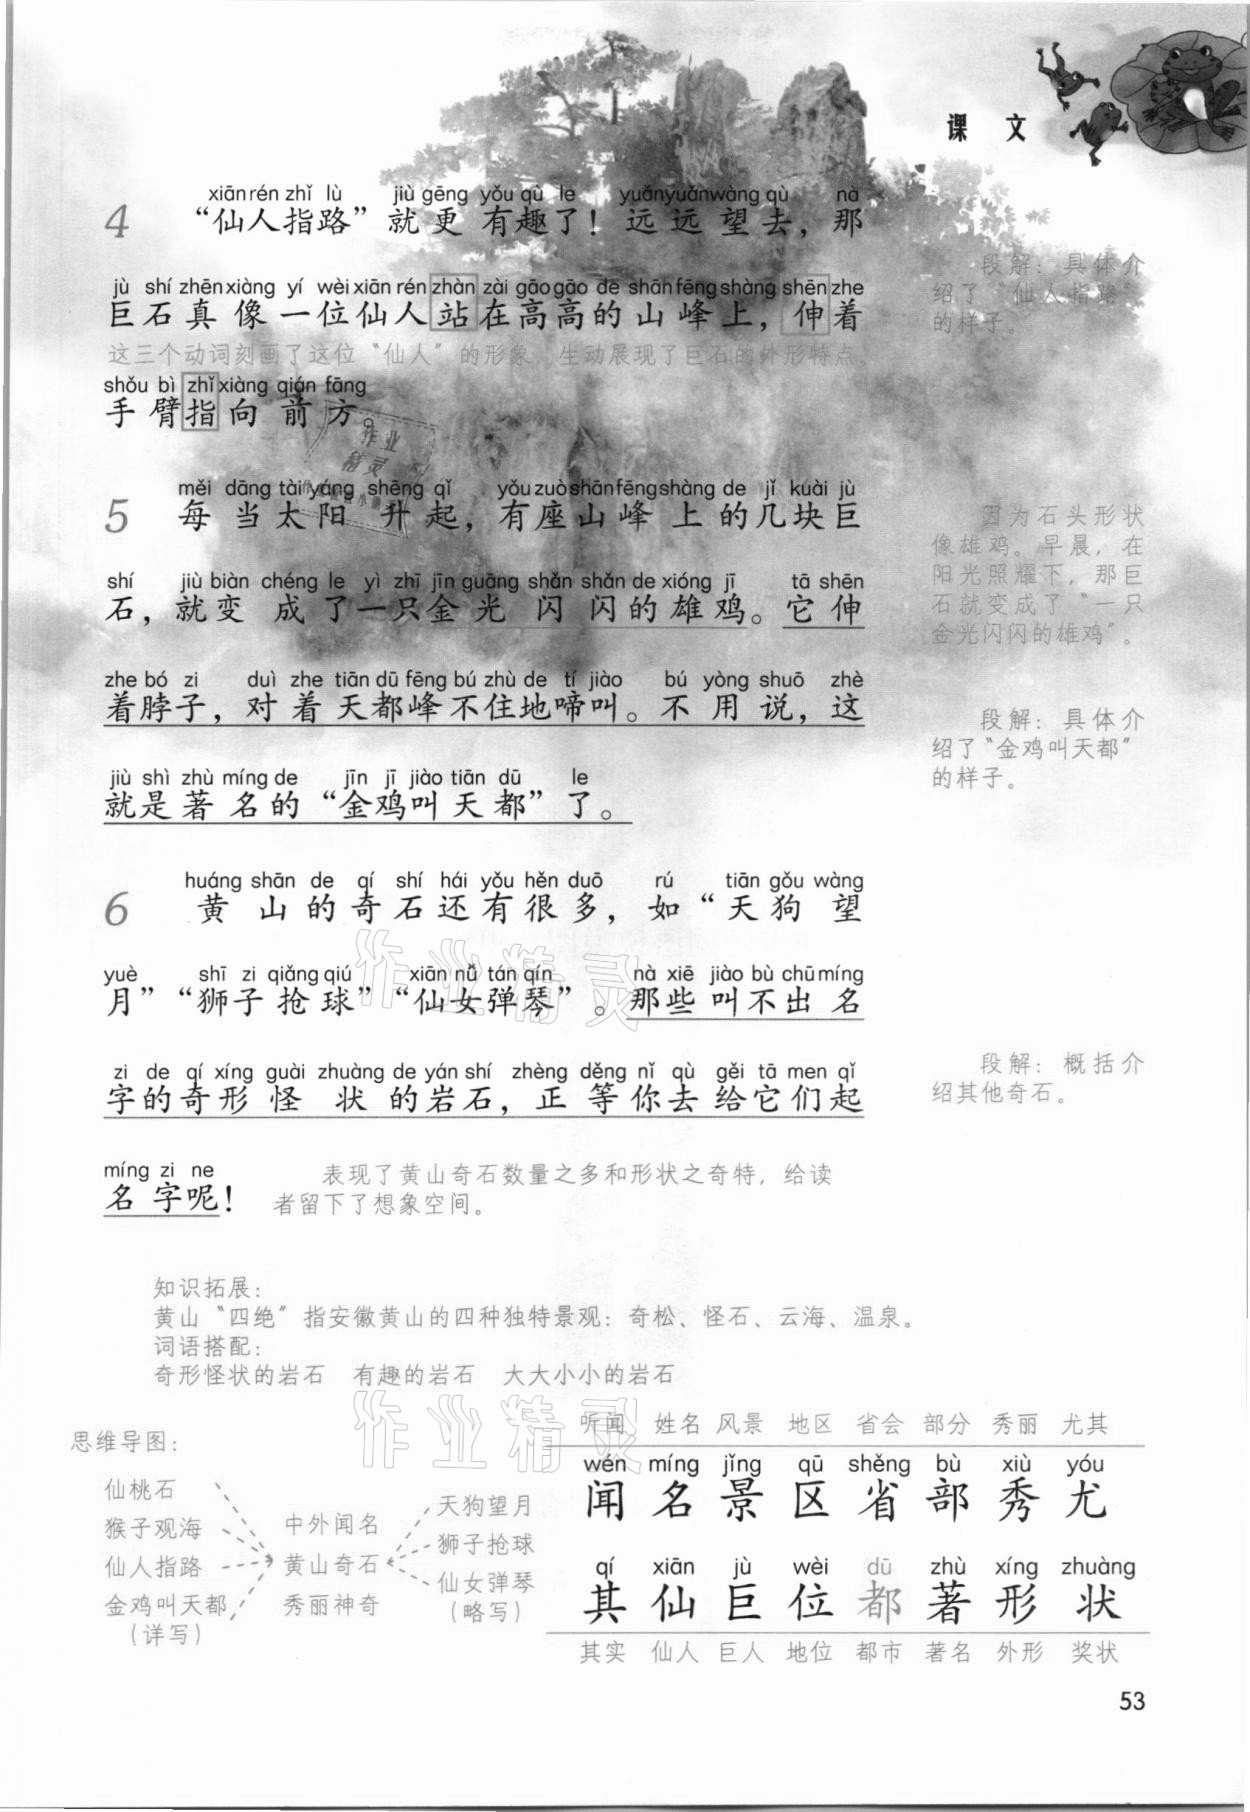 课 文
xiān rén zhǐ lù jiù gèng yǒu qù le yuǎn yuǎn wàng qù nà
4 “仙人指路”就更有趣了！远远望去，那
段解：具体介
绍了“仙人指路”
的样子。
jù shí zhēn xiàng yí wèi xiān rén zhàn zài gāo gāo de shān fēng shàng shēn zhe
巨石真像一位仙人站在高高的山峰上，伸着
这三个动词刻画了这位“仙人”的形象，生动展现了巨石的外形特点。
shǒu bì zhǐ xiàng qián fāng
手臂指向前方。
měi dāng tài yáng shēng qǐ yǒu zuò shān fēng shàng de jǐ kuài jù
5 每当太阳升起，有座山峰上的几块巨
因为石头形状
像雄鸡。早晨，在
阳光照耀下，那巨
石就变成了“一只
金光闪闪的雄鸡”。
shí jiù biàn chéng le yì zhī jīn guāng shǎn shǎn de xióng jī tā shēn
石，就变成了一只金光闪闪的雄鸡。它伸
zhe bó zi duì zhe tiān dū fēng bú zhù de tí jiào bú yòng shuō zhè
着脖子，对着天都峰不住地啼叫。不用说，这
段解：具体介
绍了“金鸡叫天都”
的样子。
jiù shì zhù míng de jīn jī jiào tiān dū le
就是著名的“金鸡叫天都”了。
huáng shān de qí shí hái yǒu hěn duō rú tiān gǒu wàng
6 黄山的奇石还有很多，如“天狗望
yuè shī zi qiǎng qiú xiān nǚ tán qín nà xiē jiào bù chū míng
月”“狮子抢球”“仙女弹琴”。那些叫不出名
zi de qí xíng guài zhuàng de yán shí zhèng děng nǐ qù gěi tā men qǐ
字的奇形怪状的岩石，正等你去给它们起
段解：概括介
绍其他奇石。
míng zi ne
名字呢！
表现了黄山奇石数量之多和形状之奇特，给读
者留下了想象空间。
知识拓展：
黄山“四绝”指安徽黄山的四种独特景观：奇松、怪石、云海、温泉。
词语搭配：
奇形怪状的岩石 有趣的岩石 大大小小的岩石
思维导图：
仙桃石
猴子观海
仙人指路
金鸡叫天都
（详写）
中外闻名
黄山奇石
秀丽神奇
天狗望月
狮子抢球
仙女弹琴
（略写）
听闻 姓名 风景 地区 省会 部分 秀丽 尤其
wén míng jǐng qū shěng bù xiù yóu
闻 名 景 区 省 部 秀 尤
qí xiān jù wèi dū zhù xíng zhuàng
其 仙 巨 位 都 著 形 状
其实 仙人 巨人 地位 都市 著名 外形 奖状
53
作业精灵
作业精灵
作业
精灵